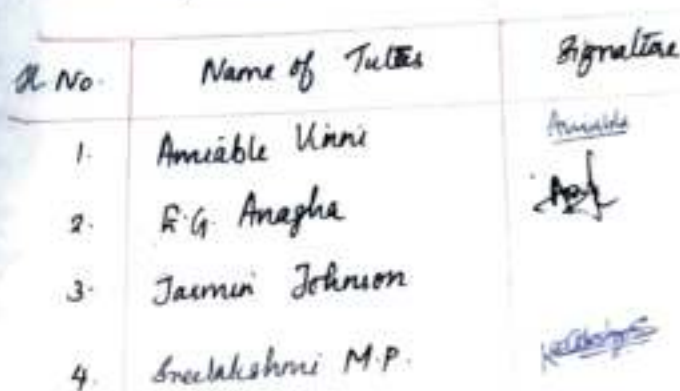 Sl. No. Name of Tutees Signature
1. Amiable Vinni Amiable
2. E.G. Anagha
3. Jasmin Johnson
4. Sreelakshmi M.P.